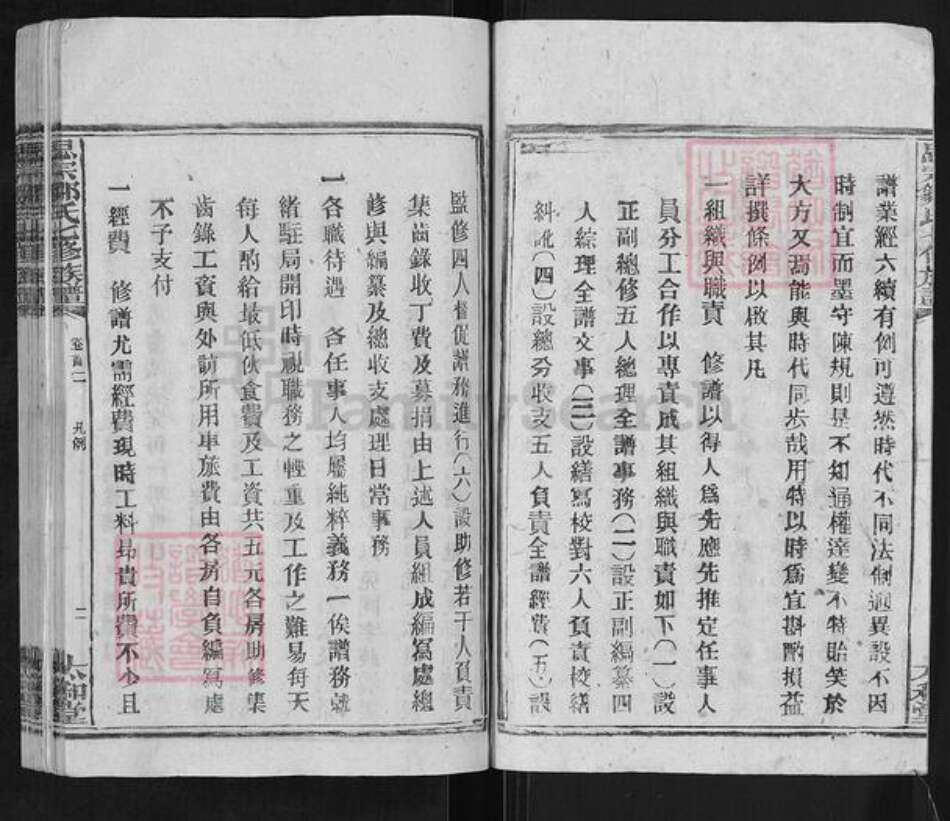 譜業經六續有例可遵然時代不同法制迥異設不因
時制宜而墨守陳規則是不知通權達變不特貽笑於
大方又焉能與時代同步哉用特以時爲宜斟酌損益
詳撰條例以啟其凡
一組織與職責 修譜以得人爲先應先推定任事人
員分工合作以專責成其組織與職責如下(一)設
正副總修五人總理全譜事務(二)設正副編纂四
人綜理全譜文事(三)設繕寫校對六人負責校繕
糾訛(四)設總分收支五人負責全譜經費(五)設
監修四人督促譜務進行(六)設助修若干人負責
集齒錄收丁費及募捐由上述人員組成編寫處總
修與編纂及總收支處理日常事務
一各職待遇 各任事人均屬純粹義務一俟譜務就
緒駐局開印時視職務之輕重及工作之難易每天
每人酌給最低伙食費及工資共五元各房助修集
齒錄工資與外訪所用車旅費由各房自負編寫處
不予支付
一經費 修譜尤需經費現時工料昂貴所費不少且
忠宗鄒氏七修族譜
卷首二
凡例
二
FamilySearch